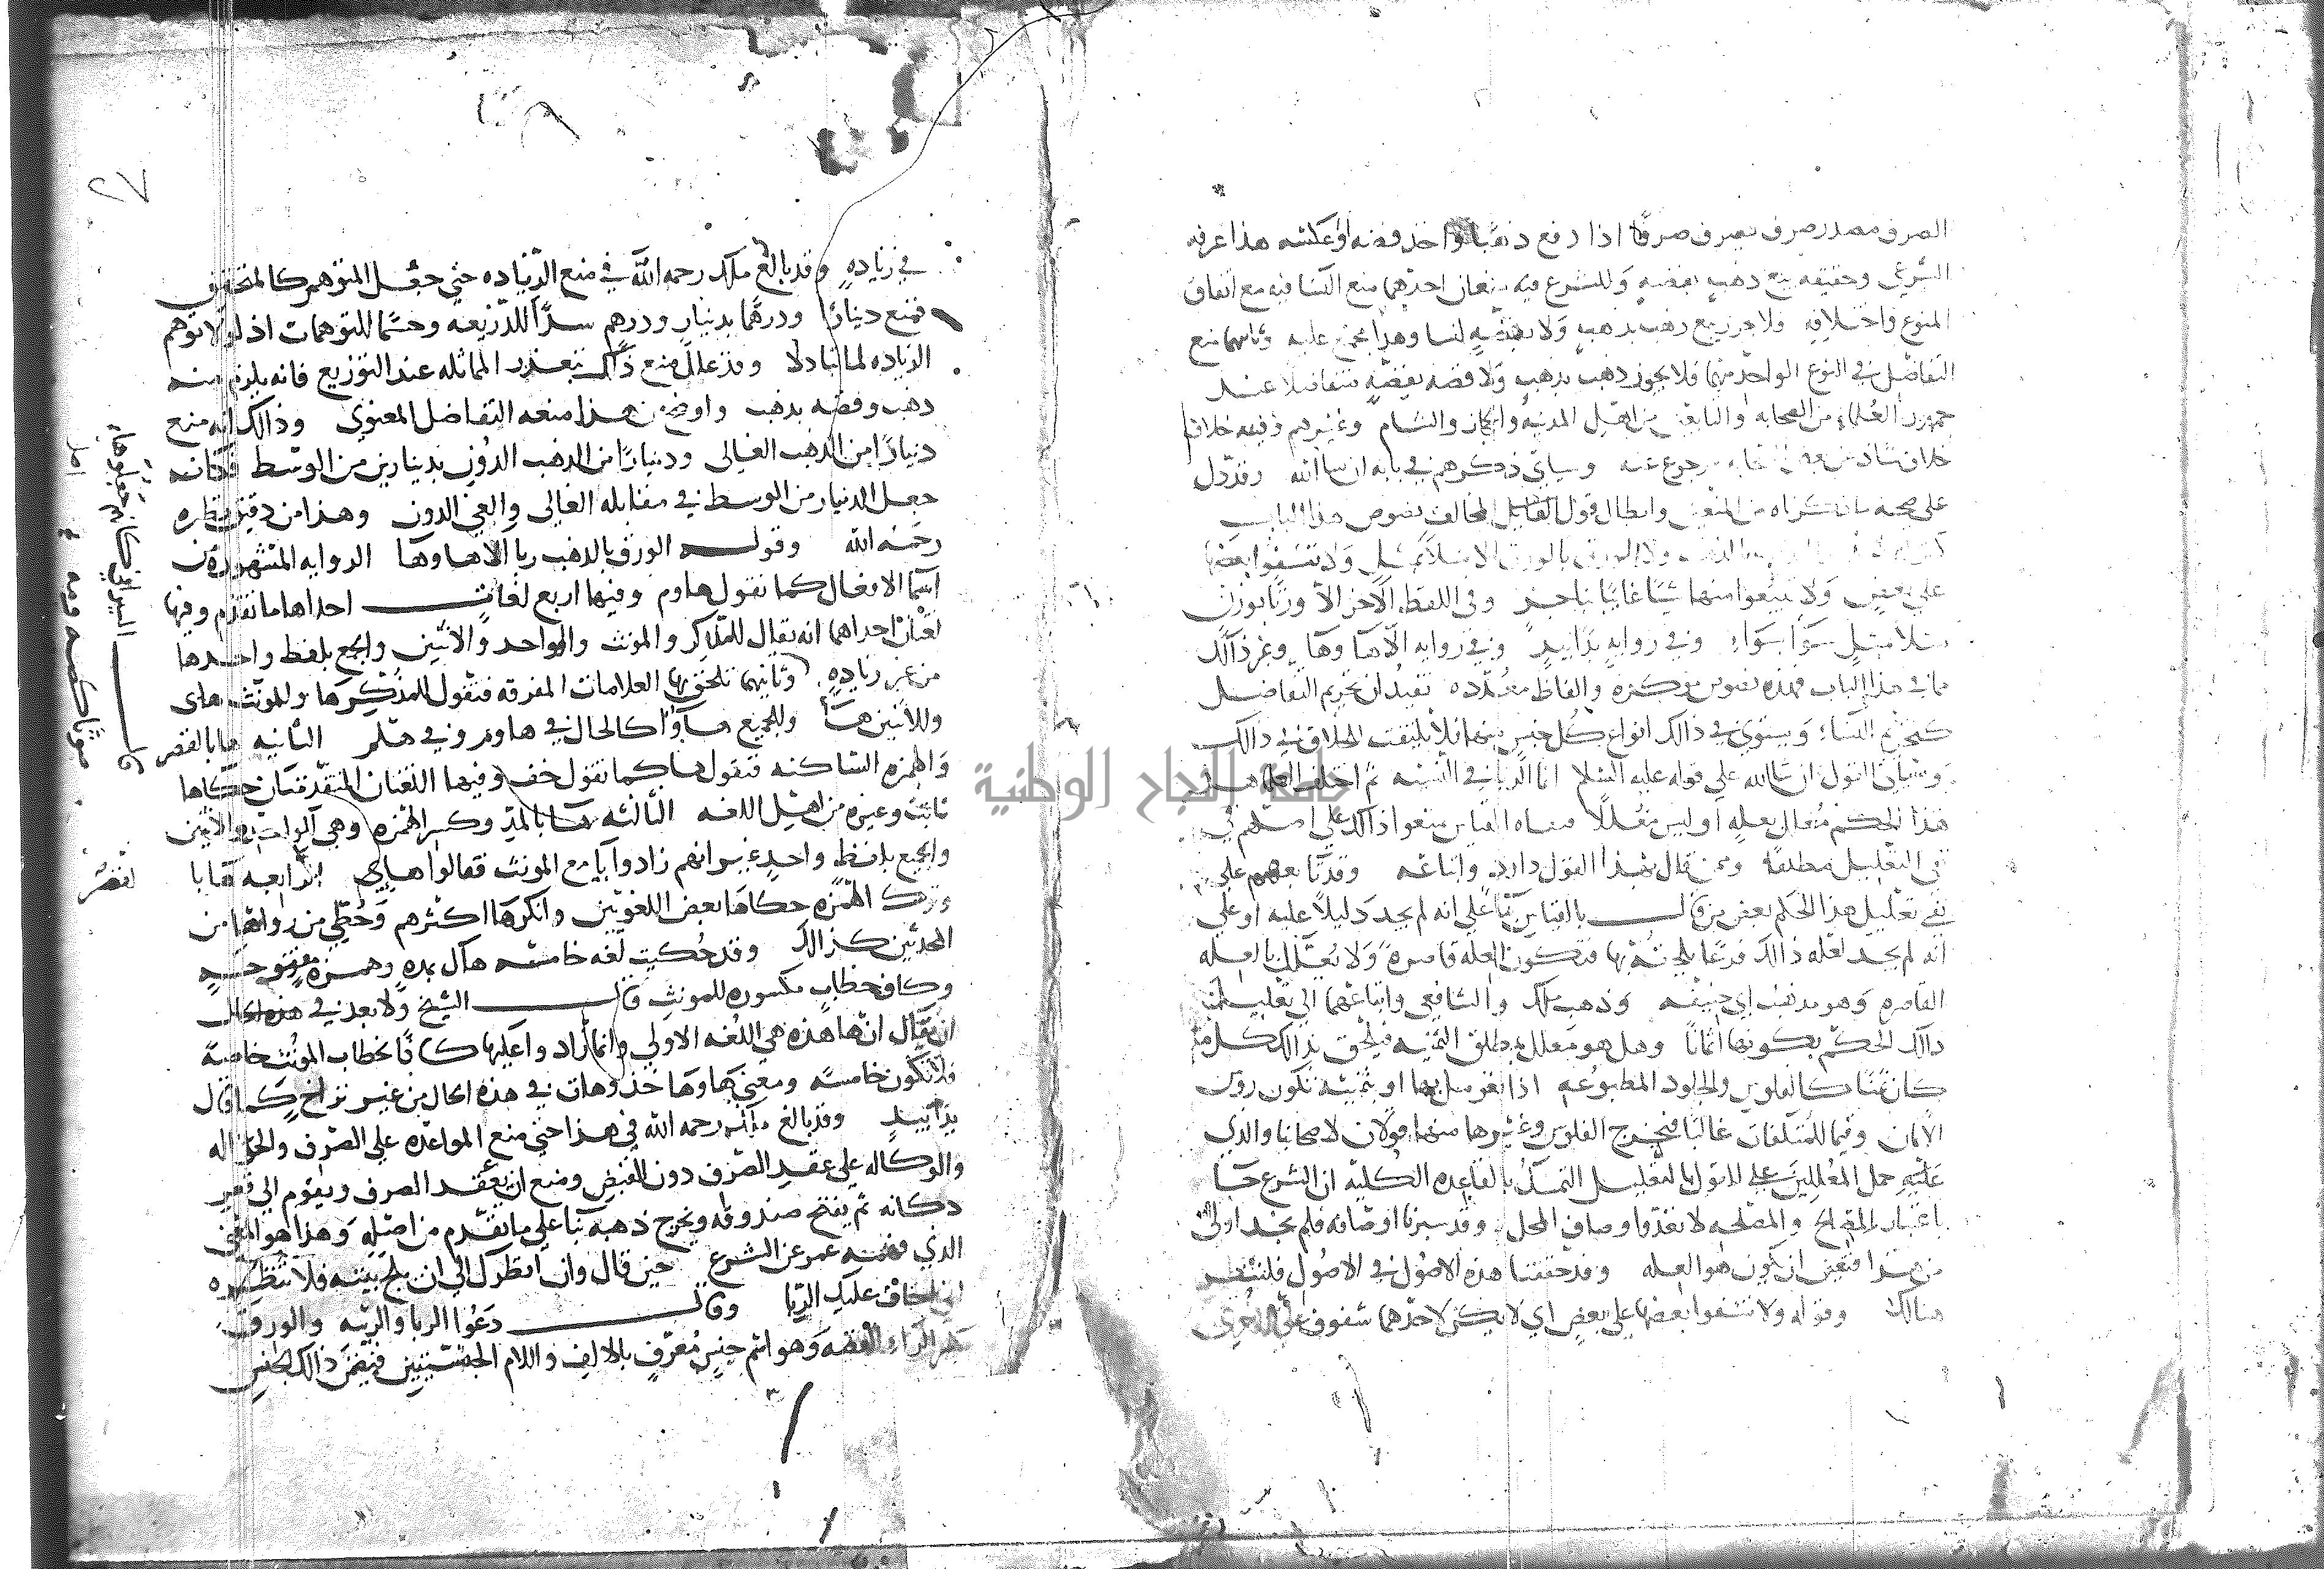 الصرف مصدر صرف يصرف صرفًا اذا دفع ذهبًا واخذ فضه او عكسه هذا عرفه
الشرعي وحقيقته بيع ذهب بفضه وللشرع فيه منعان احدهما منع النسا فيه مع اتفاق
النوع واختلافه فلا يجوز بيع ذهب بذهب ولا بفضه لنسا وهذا مجمع عليه وثانيهما منع
التفاضل في النوع الواحد منهما فلا يجوز ذهب بذهب ولا فضه بفضه متفاضلا عند
جمهور العلماء من الصحابه والتابعين من اهل المدينه والحجاز والشام وغيرهم وفيه خلاف
خلاف شاذ عن بعض الصحابه مرجوع عنه وسياتي ذكرهم في بابه ان شا الله وقد دل
على صحه ما ذكرناه من المنعين وابطال قول القايل المخالف نصوص هذا الباب
ولا الورق بالورق الا مثلا بمثل ولا تشفوا بعضها
على بعض ولا تبيعوا منها شيًا غايبًا بناجز وفي اللفظ الاخر الا وزنًا بوزن
مثلا بمثل سوا بسواء وفي روايه يدًا بيد وفي روايه الا ها وها وغير ذالك
مما في هذا الباب فهذه نصوص مؤكده والفاظ متعدده تفيد ان تحريم التفاضل
كتحريم النساء ويستوي في ذالك انواع كل جنس منهما فلا يلتفت لخلاف في ذالك
وسياتي القول ان شا الله على قوله عليه السلام انما الربا في النسيه ثم اختلف العلما هل
هذا الحكم معلل بعله او ليس معللًا فنفاه القياس منعوا ذالك على اصلهم في
نفي التعليل مطلقًا وممن قال بهذا القول داود واتباعه وقد بنا بعضهم على
نفي تعليل هذا الحكم بعض من قال بالقياس بنًا على انه لم يجد دليلًا عليه او على
انه لم يجد لعله ذالك فرعًا يلحق بها فتكون العله قاصرة ولا يعلل بالعله
القاصره وهو مذهب ابي حنيفه وذهب ملك والشافعي واتباعهما الى تعليل
ذالك الحكم بكونها اثمانًا وهل هو معلل بمطلق الثمنيه فيلحق بذالك كل ما
كان ثمنًا كالفلوس والجلود المطبوعه اذا تعومل بها او بثمنيه تكون روس
الاثمان وقيما للمتلفات غالبًا فتخرج الفلوس وغيرها منها قولان لاصحابنا والذي
عليه حمل المعللين على القول بالتعليل التمسك بالقاعده الكليه ان الشرع جا
باعتبار المصالح والمصلحه لا تعدوا وصاف المحل وقد سبرنا اوصافه فلم نجد اولى
من هذا فتعين ان يكون هو العله وقد حققنا هذه الاصول في الاصول فلتنظر
هنالك وقوله ولا تشفوا بعضها على بعض اي لا يكن لاحدهما شفوف على الاخرى
٢٧
في زياده وقد بالغ ملك رحمه الله في منع الزياده حتى جعل المتوهم كالمتحقق
فمنع دينارًا ودرهمًا بدينار ودرهم سدًا للذريعه وحسمًا للتوهمات اذ لولا توهم
الزياده لما تبادلا وقد علل منع ذالك بتعذر المماثله عند التوزيع فانه يلزم منه
ذهب وفضه بذهب واوضح من هذا منعه التفاضل المعنوي وذالك انه منع
دينارًا من الذهب الغالي ودينارًا من الذهب الدون بدينارين من الوسط فكانه
جعل الدينار من الوسط في مقابله الغالي والغى الدون وهذا من دقيق نظره
رحمه الله وقوله الورق بالذهب ربا الا ها وها الروايه المشهوره من
اسما الافعال كما تقول هاوم وفيها اربع لغات احداها ما تقدم وفيها
لغتان احداهما انه يقال للمذكر والمونث والواحد والاثنين والجمع بلفظ واحد ها
من غير زياده وثانيهما تلحق بها العلامات المفرقه فتقول للمذكر ها وللمونث هاى
وللاثنين هاا وللجميع هاؤا كالحال في هاوم وفي هلم الثانيه ها بالقصر
والهمزه الساكنه فتقول ها كما تقول خف وفيها اللغتان المتقدمتان حكاها
ثابت وغيره من اهل اللغه الثالثه هاء بالمد وكسر الهمزه وهي الواحد والاثنين
والجمع بلفظ واحد غير انهم زادوا يا مع المونث فقالوا هاي الرابعه ها با لقصر
وترك الهمزه حكاها بعض اللغويين وانكرها اكثرهم وخُطي من رواها من
المحدثين كذالك وقد حكيت لغه خامسه هاك بمده وهمزه مفتوحه
وكاف خطاب مكسوره للمونث قال الشيخ ولا بعد في هذه الحال
ان يقال انها هذه هي اللغه الاولى وانما زاد واعليها كافًا لخطاب المونث خاصة
فلا تكون خامسة ومعنى ها وها خذ وهات في هذه الحال من غير تراخٍ كما قال
يدًا بيد وقد بالغ ملك رحمه الله في هذا حتى منع المواعده على الصرف والحواله
والوكاله على عقد الصرف دون القبض ومنع ان يعقد الصرف ويقوم الى قعر
دكانه ثم يفتح صندوقه ويخرج ذهبه بنا على ما تقدم من اصله وهذا هو المعنى
الذي فهمه عمر عن الشرع حين قال وان استنظرك الى ان يلج بيته فلا تنظره
اني اخاف عليك الربا وقال دعوا الربا والريبه والورق
بكسر الراء الفضه وهو اسم جنس معرف بالالف واللام الجنسيتين فيعم ذالك الجنس